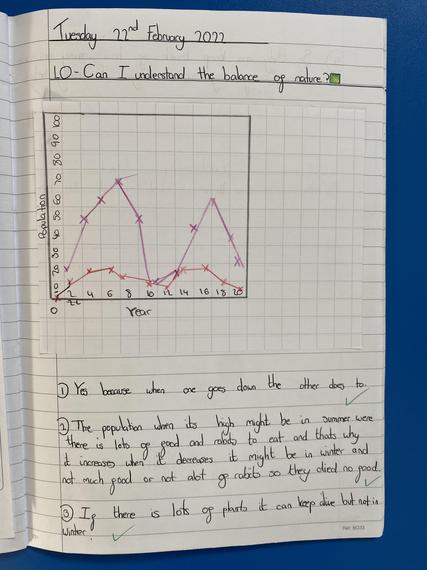 Tuesday 22nd February 2022
LO-Can I understand the balance of nature?
100
90
80
70
60
50
40
30
20
10
0
Population
2 4 6 8 10 12 14 16 18 20
Year
① Yes because when one goes down the other does to.
② The population when its high might be in summer were
there is lots of food and rabits to eat and thats why
it increases when it decreases it might be in winter and
not much food or not alot of rabits so they died no food.
③ If there is lots of plants it can keep alive but not in
winter.